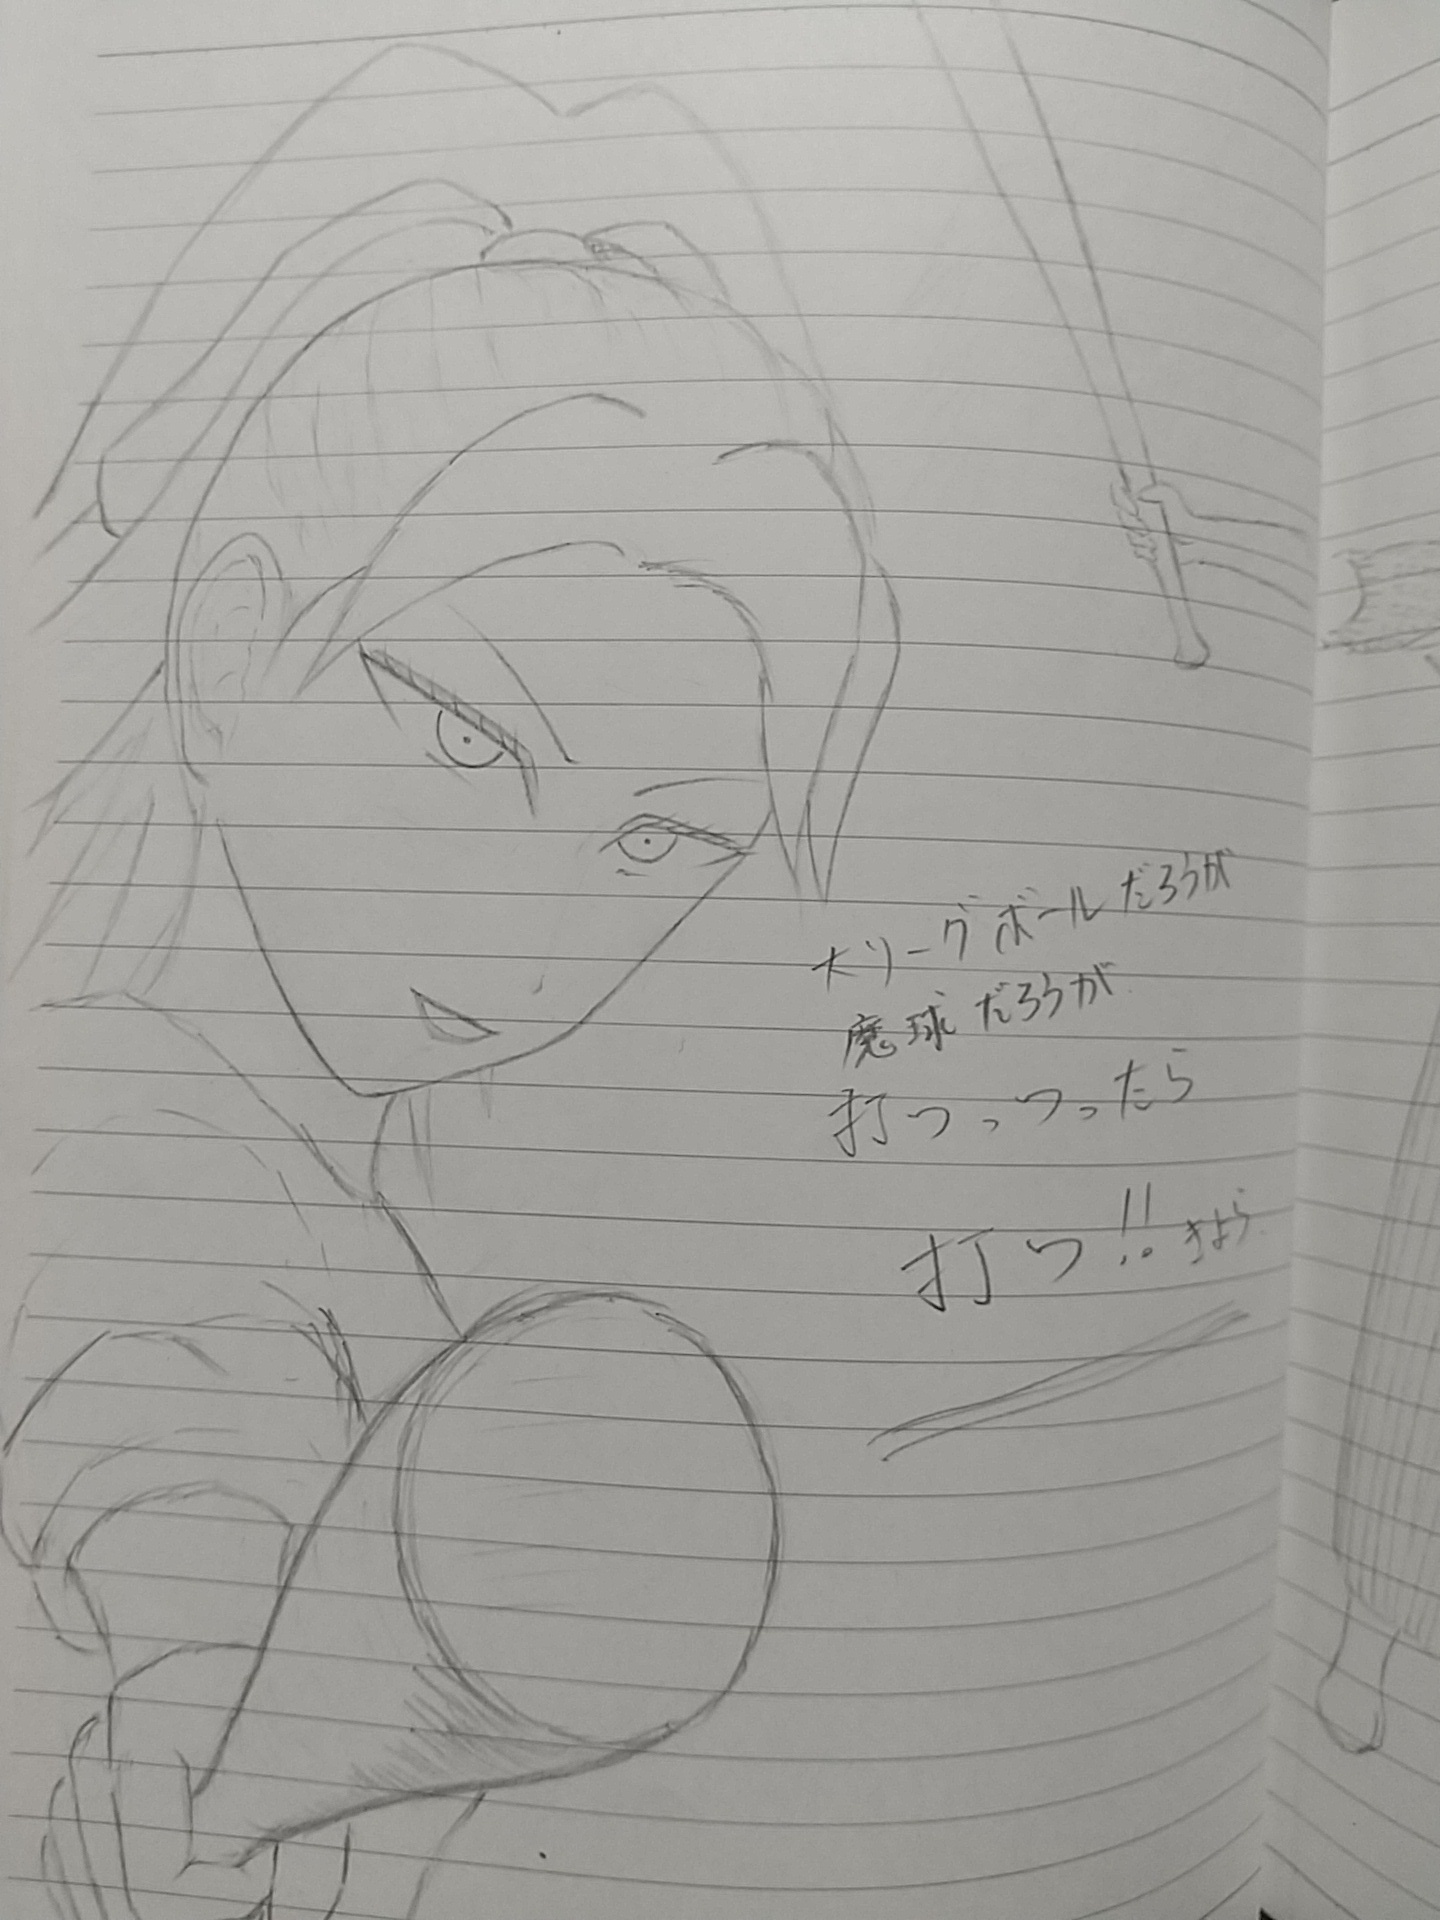 大リーグボールだろうが
魔球だろうが
打つっつったら
打つ!! きよら